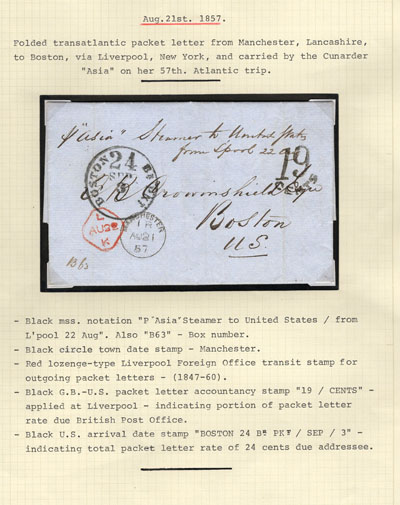 Aug.21st. 1857.
Folded transatlantic packet letter from Manchester, Lancashire,
to Boston, via Liverpool, New York, and carried by the Cunarder
"Asia" on her 57th. Atlantic trip.
p "Asia" Steamer to United States
from L'pool 22 Aug
BOSTON Br PKT
24
SEP
3
19
CENTS
Brownshield Esqre
Boston
U.S.
L
AU22
K
MANCHESTER
AU21
57
B63
- Black mss. notation "P"Asia"Steamer to United States / from
L'pool 22 Aug". Also "B63" - Box number.
- Black circle town date stamp - Manchester.
- Red lozenge-type Liverpool Foreign Office transit stamp for
outgoing packet letters - (1847-60).
- Black G.B.-U.S. packet letter accountancy stamp "19 / CENTS" -
applied at Liverpool - indicating portion of packet letter
rate due British Post Office.
- Black U.S. arrival date stamp "BOSTON 24 Bᴿ PKᵀ / SEP / 3" -
indicating total packet letter rate of 24 cents due addressee.